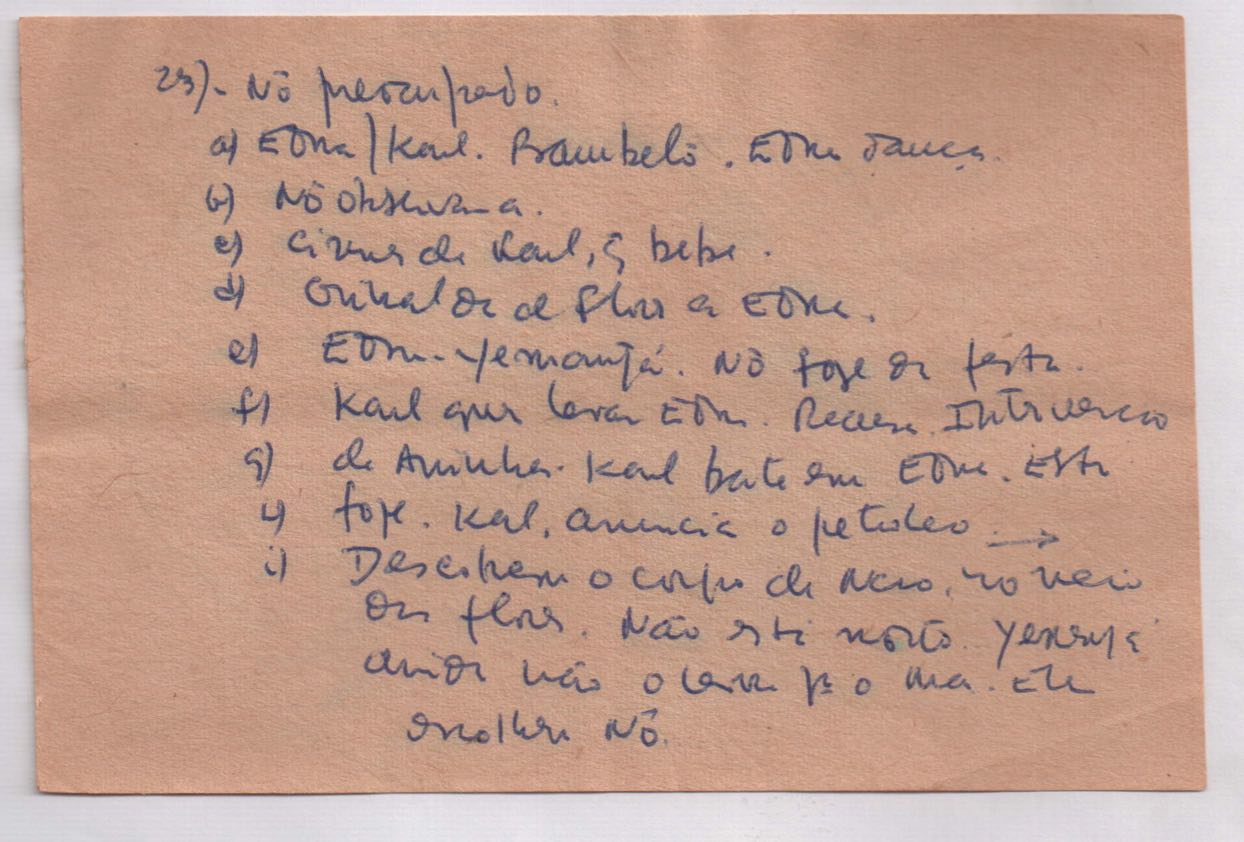 23). Nô preocupado.
a) Edna/Karl. Bambelô. Edna dança.
b) Nô observa-a.
c) Ciumes de Karl, q̃ bebe.
d) Grinalda de flores a Edna.
e) Edna-Yemanjá. Nô foge da festa.
f) Karl quer levar Edna. Recusa. Intervenção
g) de Aninha. Karl bate em Edna. Esta
h) foge. Karl, anuncia o petroleo. →
i) Descobrem o corpo de Neco, no meio
das flores. Não está morto. Yemanjá
ainda não o levou p̃ o mar. Ela
escolhera Nô.